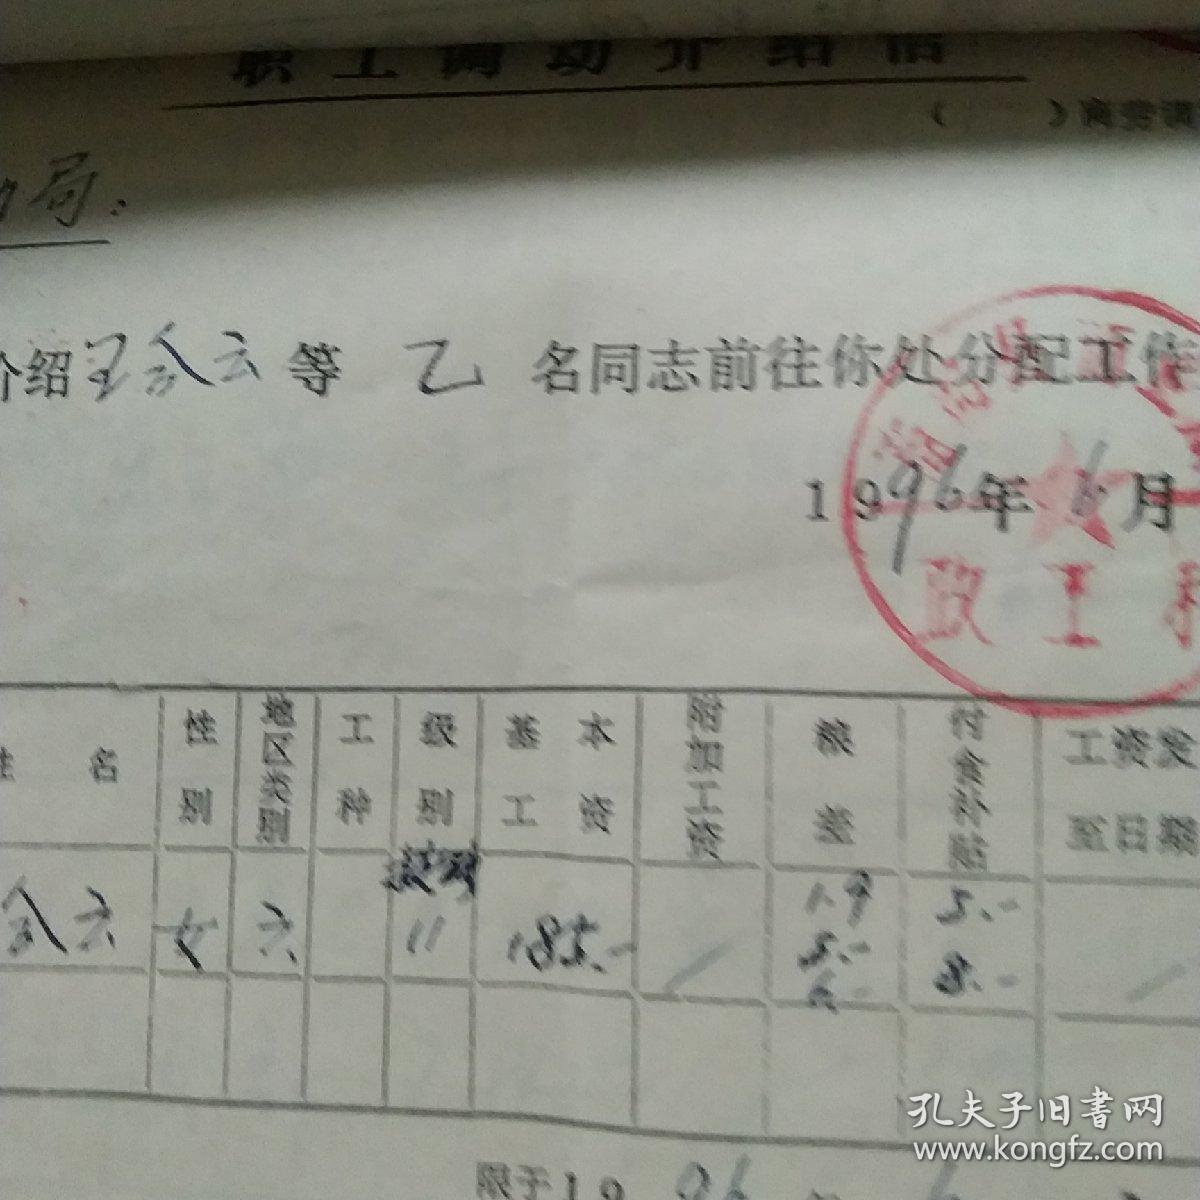 职工调动介绍信
(　　)商劳调
局:
介绍王
云等 乙 名同志前往你处分配工作
1996年6月
政工
姓名 性别 地区类别 工种 级别 基本工资 附加工资 粮差 付食补贴 工资发至日期
云 女 六 11 185.- / 1.9 5.- 6.- 5.- 8.- /
限于1996
孔夫子旧书网
www.kongfz.com